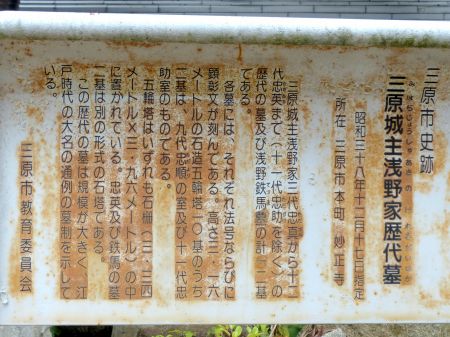 三原市史跡
みはらじょうしゅあさのけれきだいぼ
三原城主浅野家歴代墓
昭和三十八年十二月十七日指定
所在 三原市本町 妙正寺
三原城主浅野家三代忠真から十二
代忠英まで（十一代忠助を除く）の
歴代の墓及び浅野鉄馬霊の計一二基
である。
各墓には、それぞれ法号ならびに
顕彰文が刻んである。高さ三・一六
メートルの石造五輪塔一〇基のうち
二基は、九代忠順の室及び十一代忠
助室のものである。
五輪塔はいずれも石柵（三・三四
メートル×三・九六メートル）の中
に置かれている。忠英及び鉄馬の墓
二基は別の形式の石塔である。
この歴代の墓は規模が大きく、江
戸時代の大名の通例の墓制を示して
いる。
三原市教育委員会